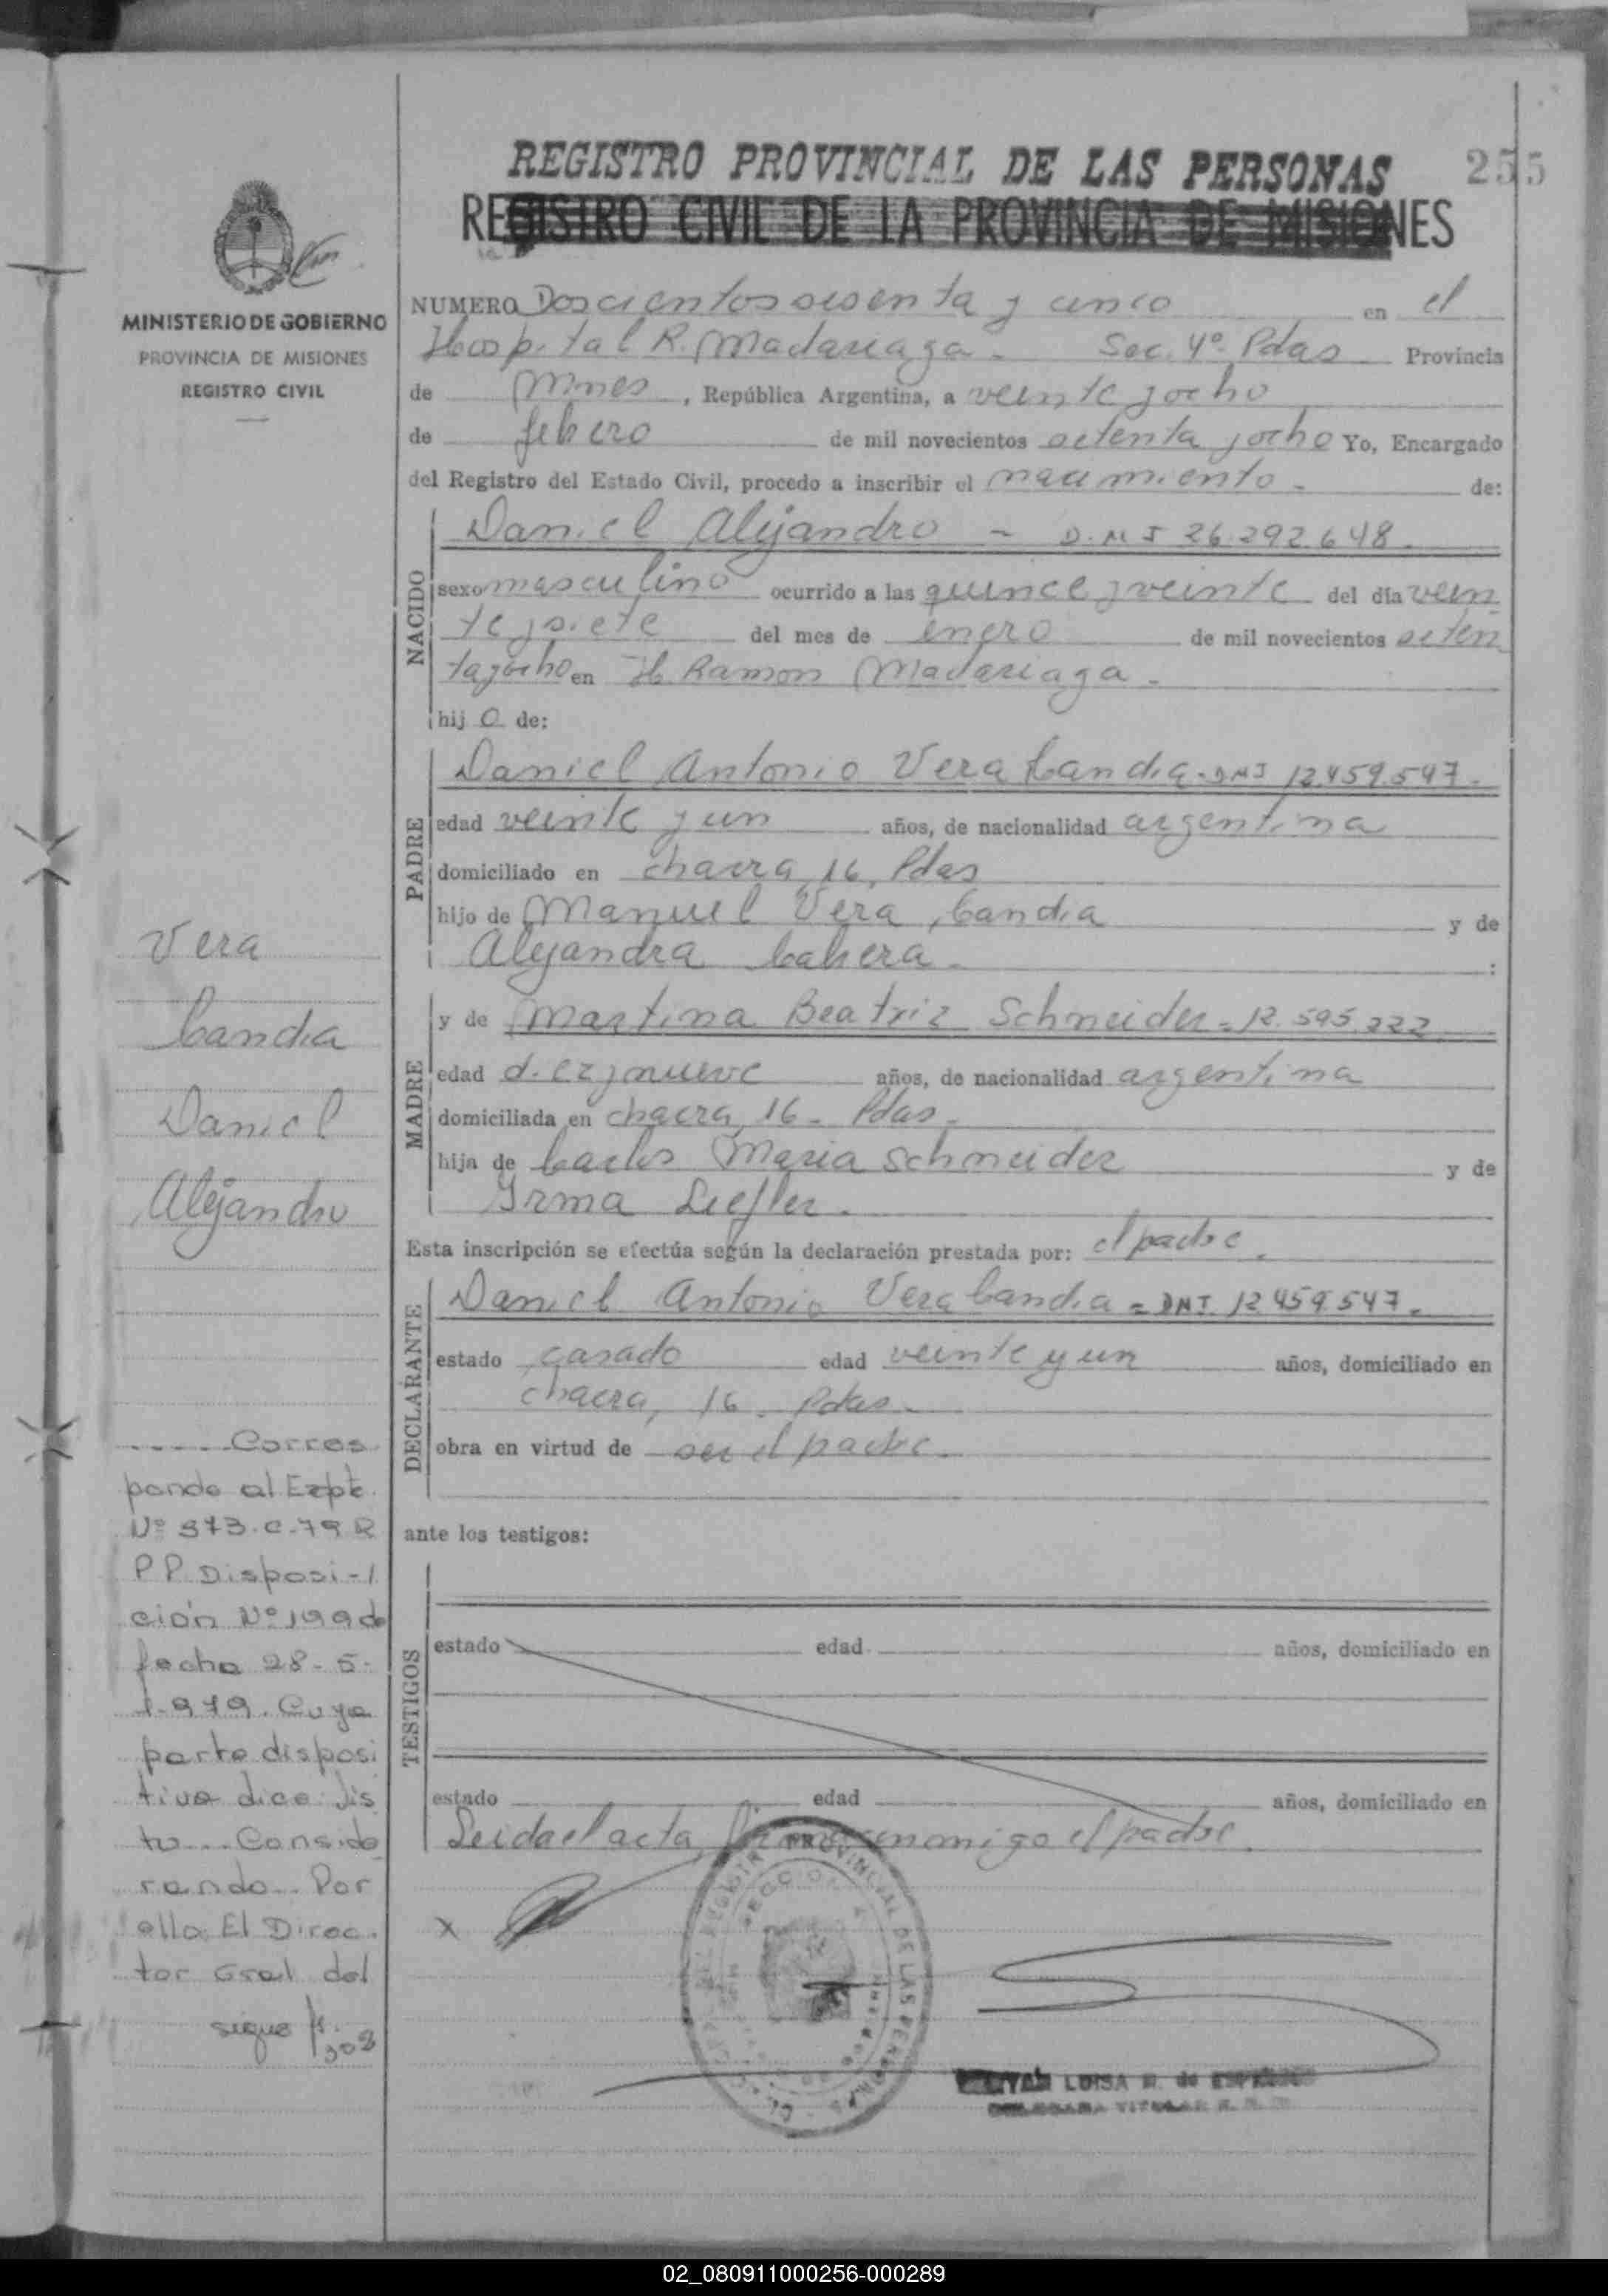 255
REGISTRO PROVINCIAL DE LAS PERSONAS
REGISTRO CIVIL DE LA PROVINCIA DE MISIONES
MINISTERIO DE GOBIERNO
PROVINCIA DE MISIONES
REGISTRO CIVIL
NUMERO Doscientos sesenta y cinco en el
Hospital R. Madariaga - Sec. 4º Pdas Provincia
de Mnes, República Argentina, a veinte y ocho
de febrero de mil novecientos setenta y ocho Yo, Encargado
del Registro del Estado Civil, procedo a inscribir el nacimiento - de:
NACIDO
Daniel Alejandro - D.N.I 26.292.648.
sexo masculino ocurrido a las quince y veinte del día vein
te y siete del mes de enero de mil novecientos seten
ta y ocho en H. Ramon Madariaga -
hij o de:
PADRE
Daniel Antonio Vera Candia - DNI 12.459.547.
edad veinte y un años, de nacionalidad argentina
domiciliado en chacra, 16, Pdas
hijo de Manuel Vera Candia y de
Alejandra Cabera - :
MADRE
y de Martina Beatriz Schneider = 12.595.222
edad diez y nueve años, de nacionalidad argentina
domiciliada en chacra, 16 - Pdas -
hija de Carlos Maria Schneider y de
Irma Liefler.
Esta inscripción se efectúa según la declaración prestada por: el padre.
DECLARANTE
Daniel Antonio Vera Candia = DNI. 12.459.547.
estado casado edad veinte y un años, domiciliado en
chacra, 16. Pdas -
obra en virtud de ser el padre.
ante los testigos:
TESTIGOS
estado edad años, domiciliado en
estado edad años, domiciliado en
Leida el acta, firma conmigo el padre.
x
PROVINCIAL DE LAS PERSONAS
LUISA M. de
DELEGADA TITULAR
Vera
Candia
Daniel
Alejandro
..... Corres
ponde al Expte.
Nº 373.C-79 R
P P Disposi-
ción Nº 199 de
fecha 28-5-
1.979. Cuya
parte disposi
tiva dice: Vis
to... Conside
rando.. Por
ello: El Direc.
tor Gral del
sigue f. 308
02_080911000256-000289